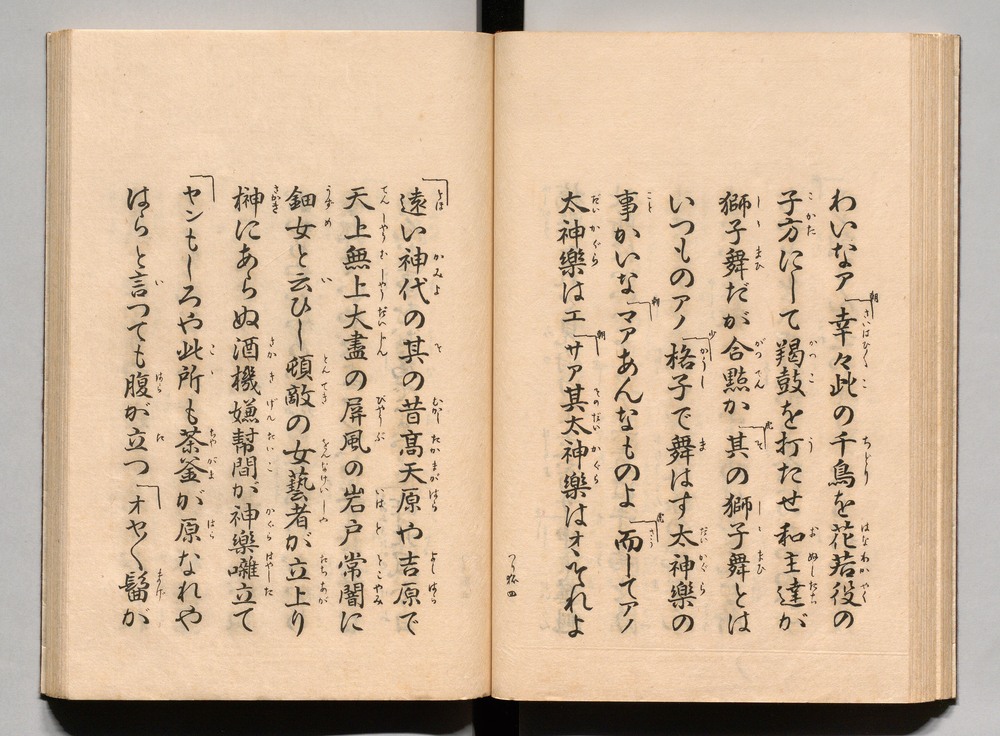 わいなア「幸々此の千鳥を花若役の
子方にして羯鼓を打たせ和主達が
獅子舞だが合點か「其の獅子舞とは
いつものアノ「格子で舞はす太神樂の
事かいな「マアあんなものよ「而してアノ
太神樂はエ「サア其太神樂はオヽそれよ
「遠い神代の其の昔高天原や吉原で
天上無上大盡の屏風の岩戸常闇に
鈿女と云ひし頓敵の女藝者が立上り
榊にあらぬ酒機嫌幇間が神樂囃立て
「ヤンもしろや此所も茶釜が原なれや
はらと言つても腹が立つ「オヤ〱髷が